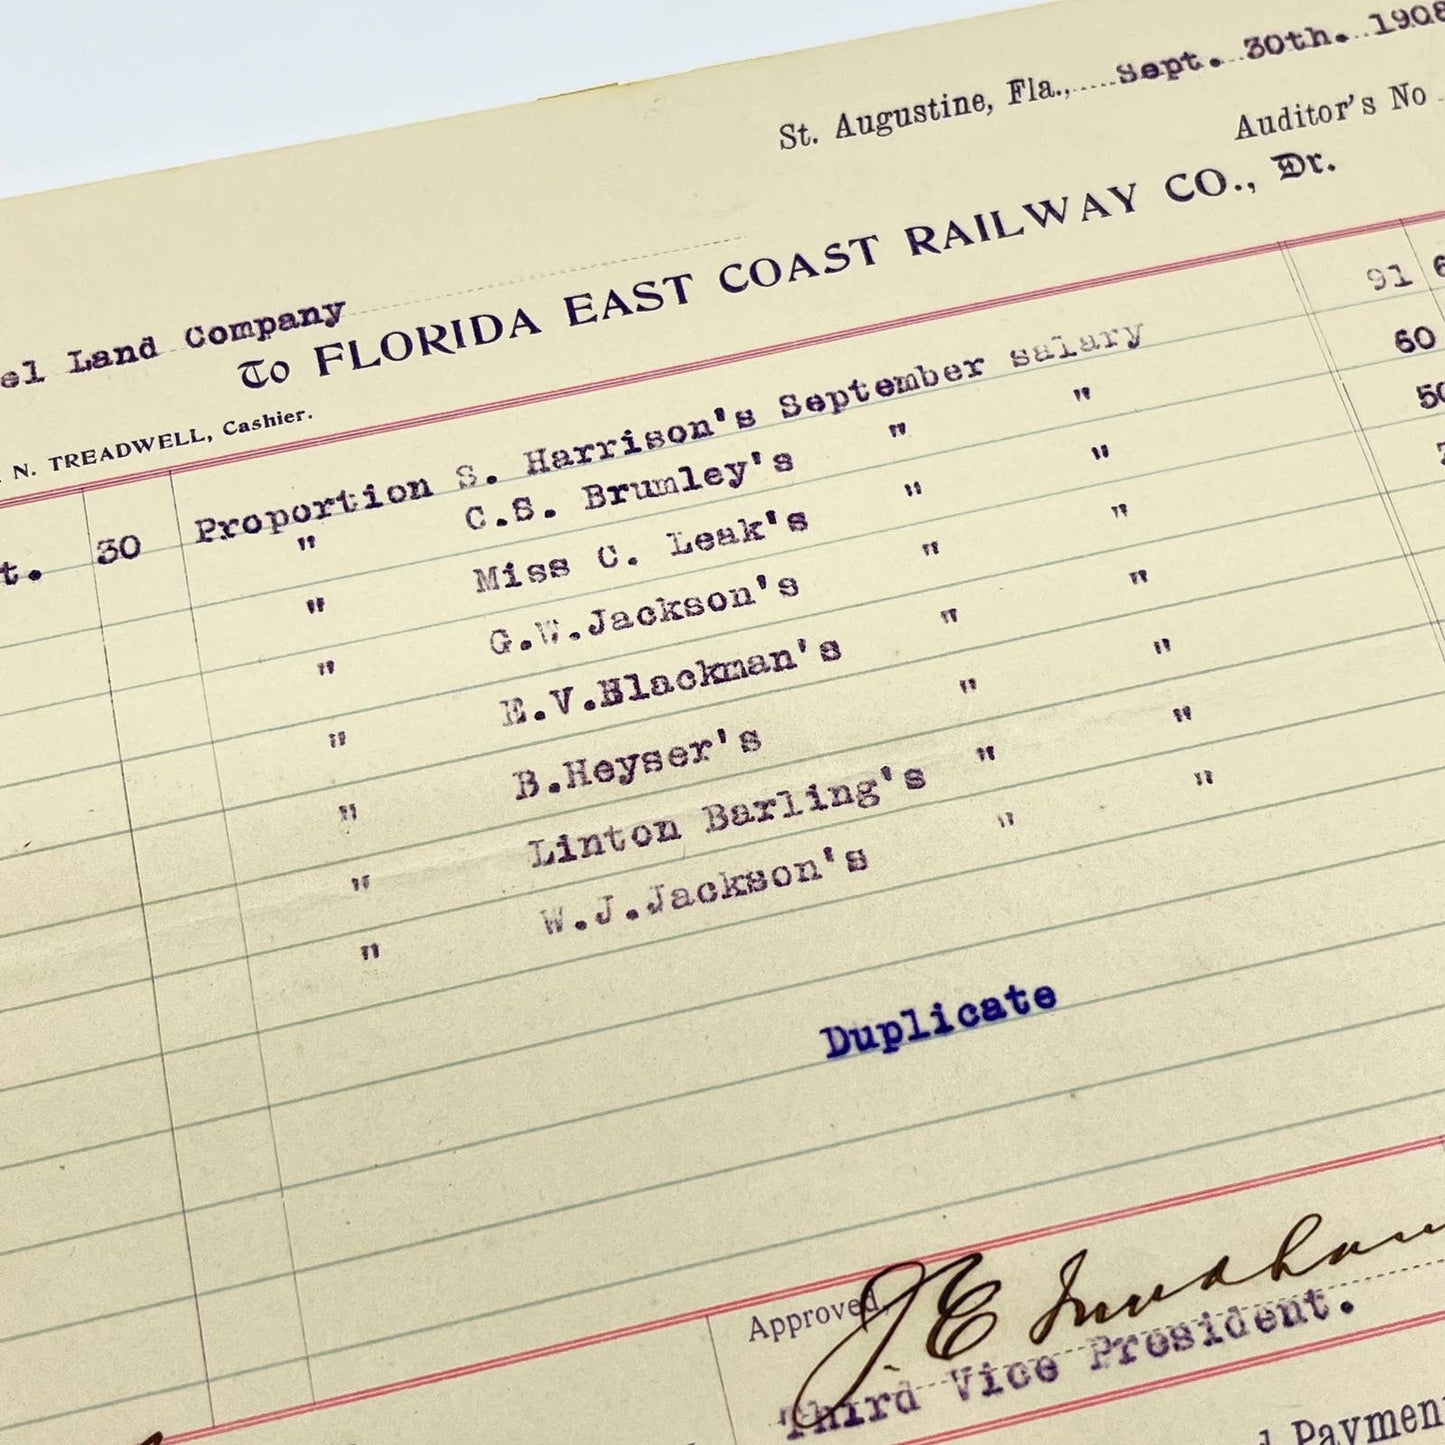 St. Augustine, Fla., Sept. 30th. 1908
Auditor's No
el Land Company
To FLORIDA EAST COAST RAILWAY CO., Dr.
N. TREADWELL, Cashier.
t. 30 Proportion S. Harrison's September salary 91 6
" C.S. Brumley's " " 60
" Miss C. Leak's " " 50
" G.W.Jackson's " "
" E.V.Blackman's " "
" B.Heyser's " "
" Linton Barling's " "
" W.J.Jackson's " "
Duplicate
Approved, J. E.
Third Vice President.
Paymen